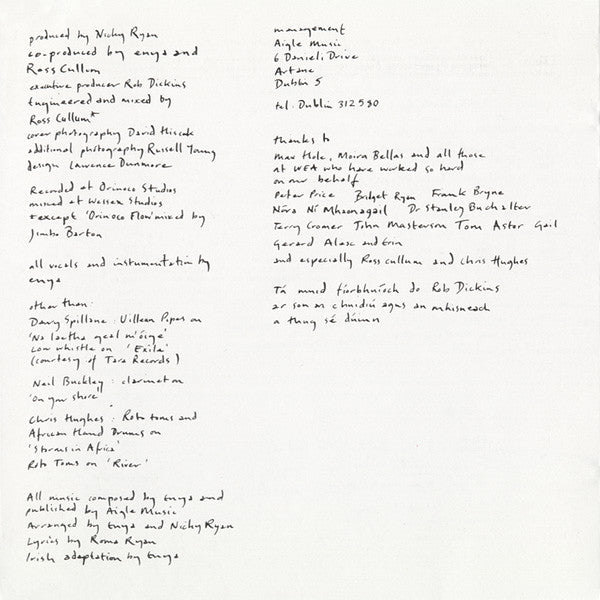 produced by Nicky Ryan
co-produced by enya and
Ross Cullum
executive producer Rob Dickins
Engineered and mixed by
Ross Cullum*
cover photography David Hiscock
additional photography Russell Young
design Lawrence Dunmore
Recorded at Orinoco Studios
mixed at Wessex Studios
*except 'Orinoco Flow' mixed by
Jimbo Barton
all vocals and instrumentation by
enya
other than:
Davy Spillane: Uillean Pipes on
'Na laetha geal m'óige'
Low whistle on 'Exile'
(courtesy of Tara Records)
Neil Buckley: clarinet on
'On your shore'
Chris Hughes: Roto toms and
African Hand Drums on
'Storms in Africa'
Roto Toms on 'River'
All music composed by Enya and
published by Aigle Music
Arranged by Enya and Nicky Ryan
Lyrics by Roma Ryan
Irish adaptation by Enya
management
Aigle Music
6 Danieli Drive
Artane
Dublin 5
tel. Dublin 312580
thanks to
Max Hole, Moira Bellas and all those
at WEA who have worked so hard
on our behalf
Peter Price Bridget Ryan Frank Bryne
Nóra Ní Mhaonagail Dr Stanley Buchalter
Terry Cromer John Masterson Tom Astor Gail
Gerard and Erin
and especially Ross Cullum and Chris Hughes
Tá muid fíorbhuíoch do Rob Dickins
ar son an chuidiú agus an mhisneach
a thug sé dúinn